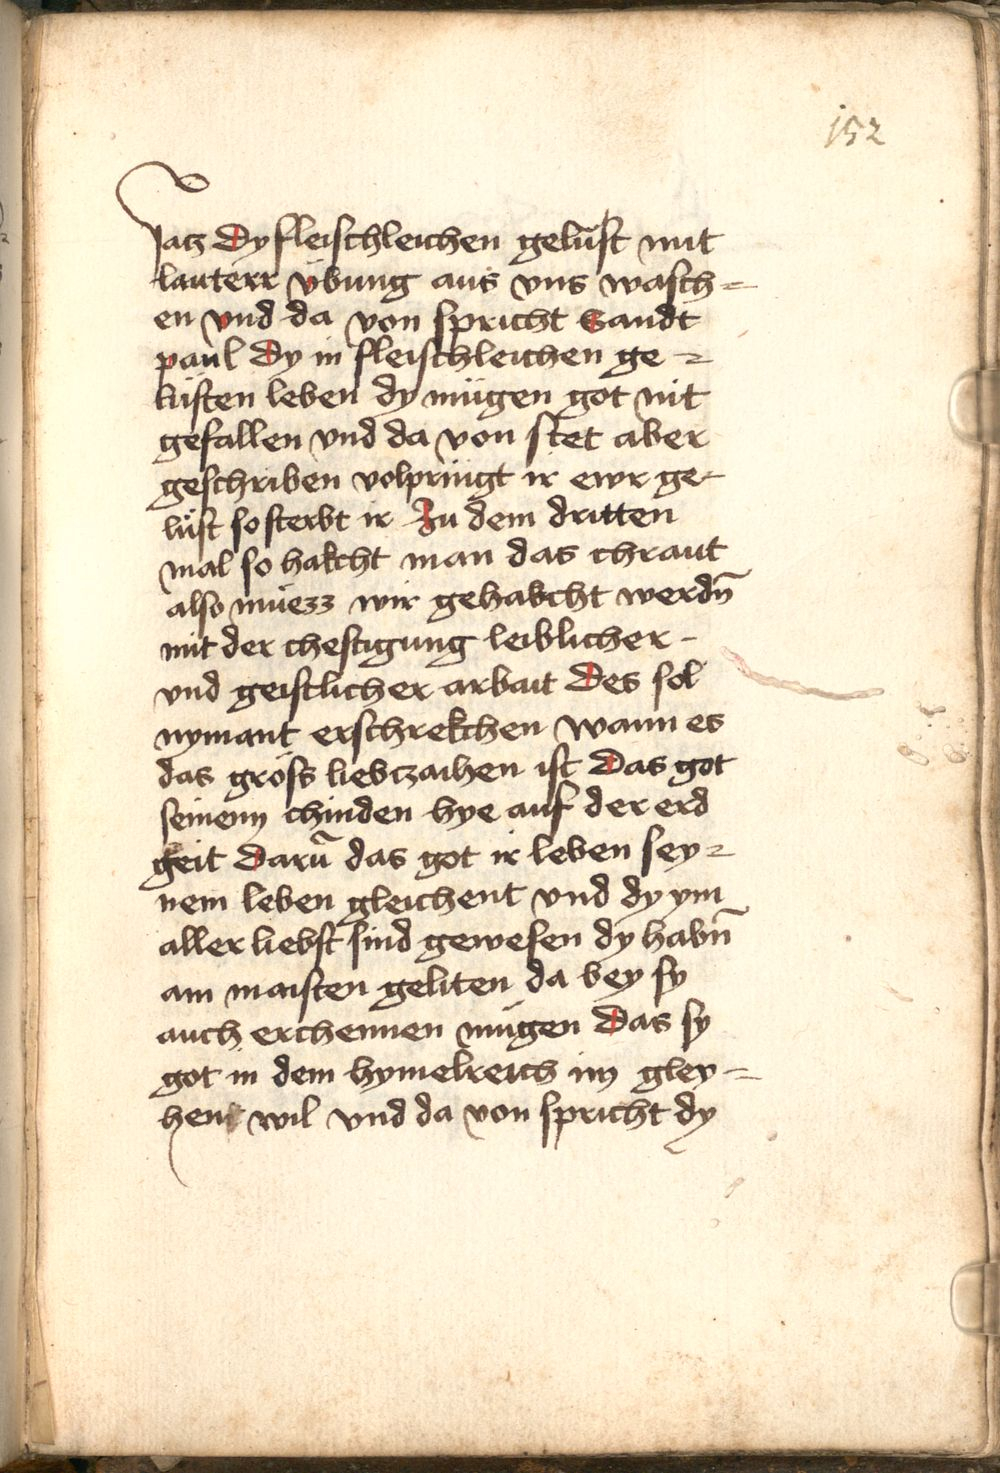 152
satz Dy fleischleichen gelüst mit
lauterr übung aus vns wasch=
en vnd da von spricht Sandt
paul Dy in fleischleichen ge=
lüsten leben dy mügen got nit
gefallen vnd da von stet aber
geschriben volpringt ir ewr ge-
lüst so sterbt ir Zu dem dritten
mal so hakcht man das chraut
also müezz wir gehakcht werdn̄
mit der chestigung leiblicher -
vnd geistlicher arbait Des sol
nymant erschrekchen wann es
das gröss liebczaihen ist Das got
seinenn chinden hye auf der erd
geit Darū das got ir leben sey=
nem leben gleichent vnd dy ym
aller liebst sind gewesen dy habn̄
am maisten geliten da bey sy
auch erchennen mügen Das sy
got in dem hymelreich im gley=
hent wil vnd da von spricht dy